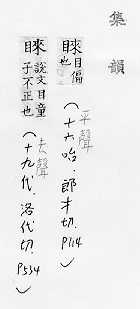 集韻
睞目偏也
平聲
(十六咍．郎才切．P114)
睞說文目童子不正也
去聲
(十九代．洛代切．P534)